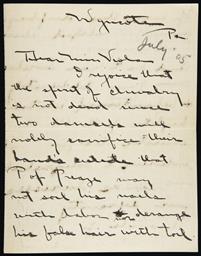 Wyncote
Pa
July 05
Dear Miss
I rejoice that
the spirit of chivalry
is not dead since
two damsels will
nobly sacrifice their
hands that
Pop may
not soil his nails
with labor nor derange
his false hair with toil